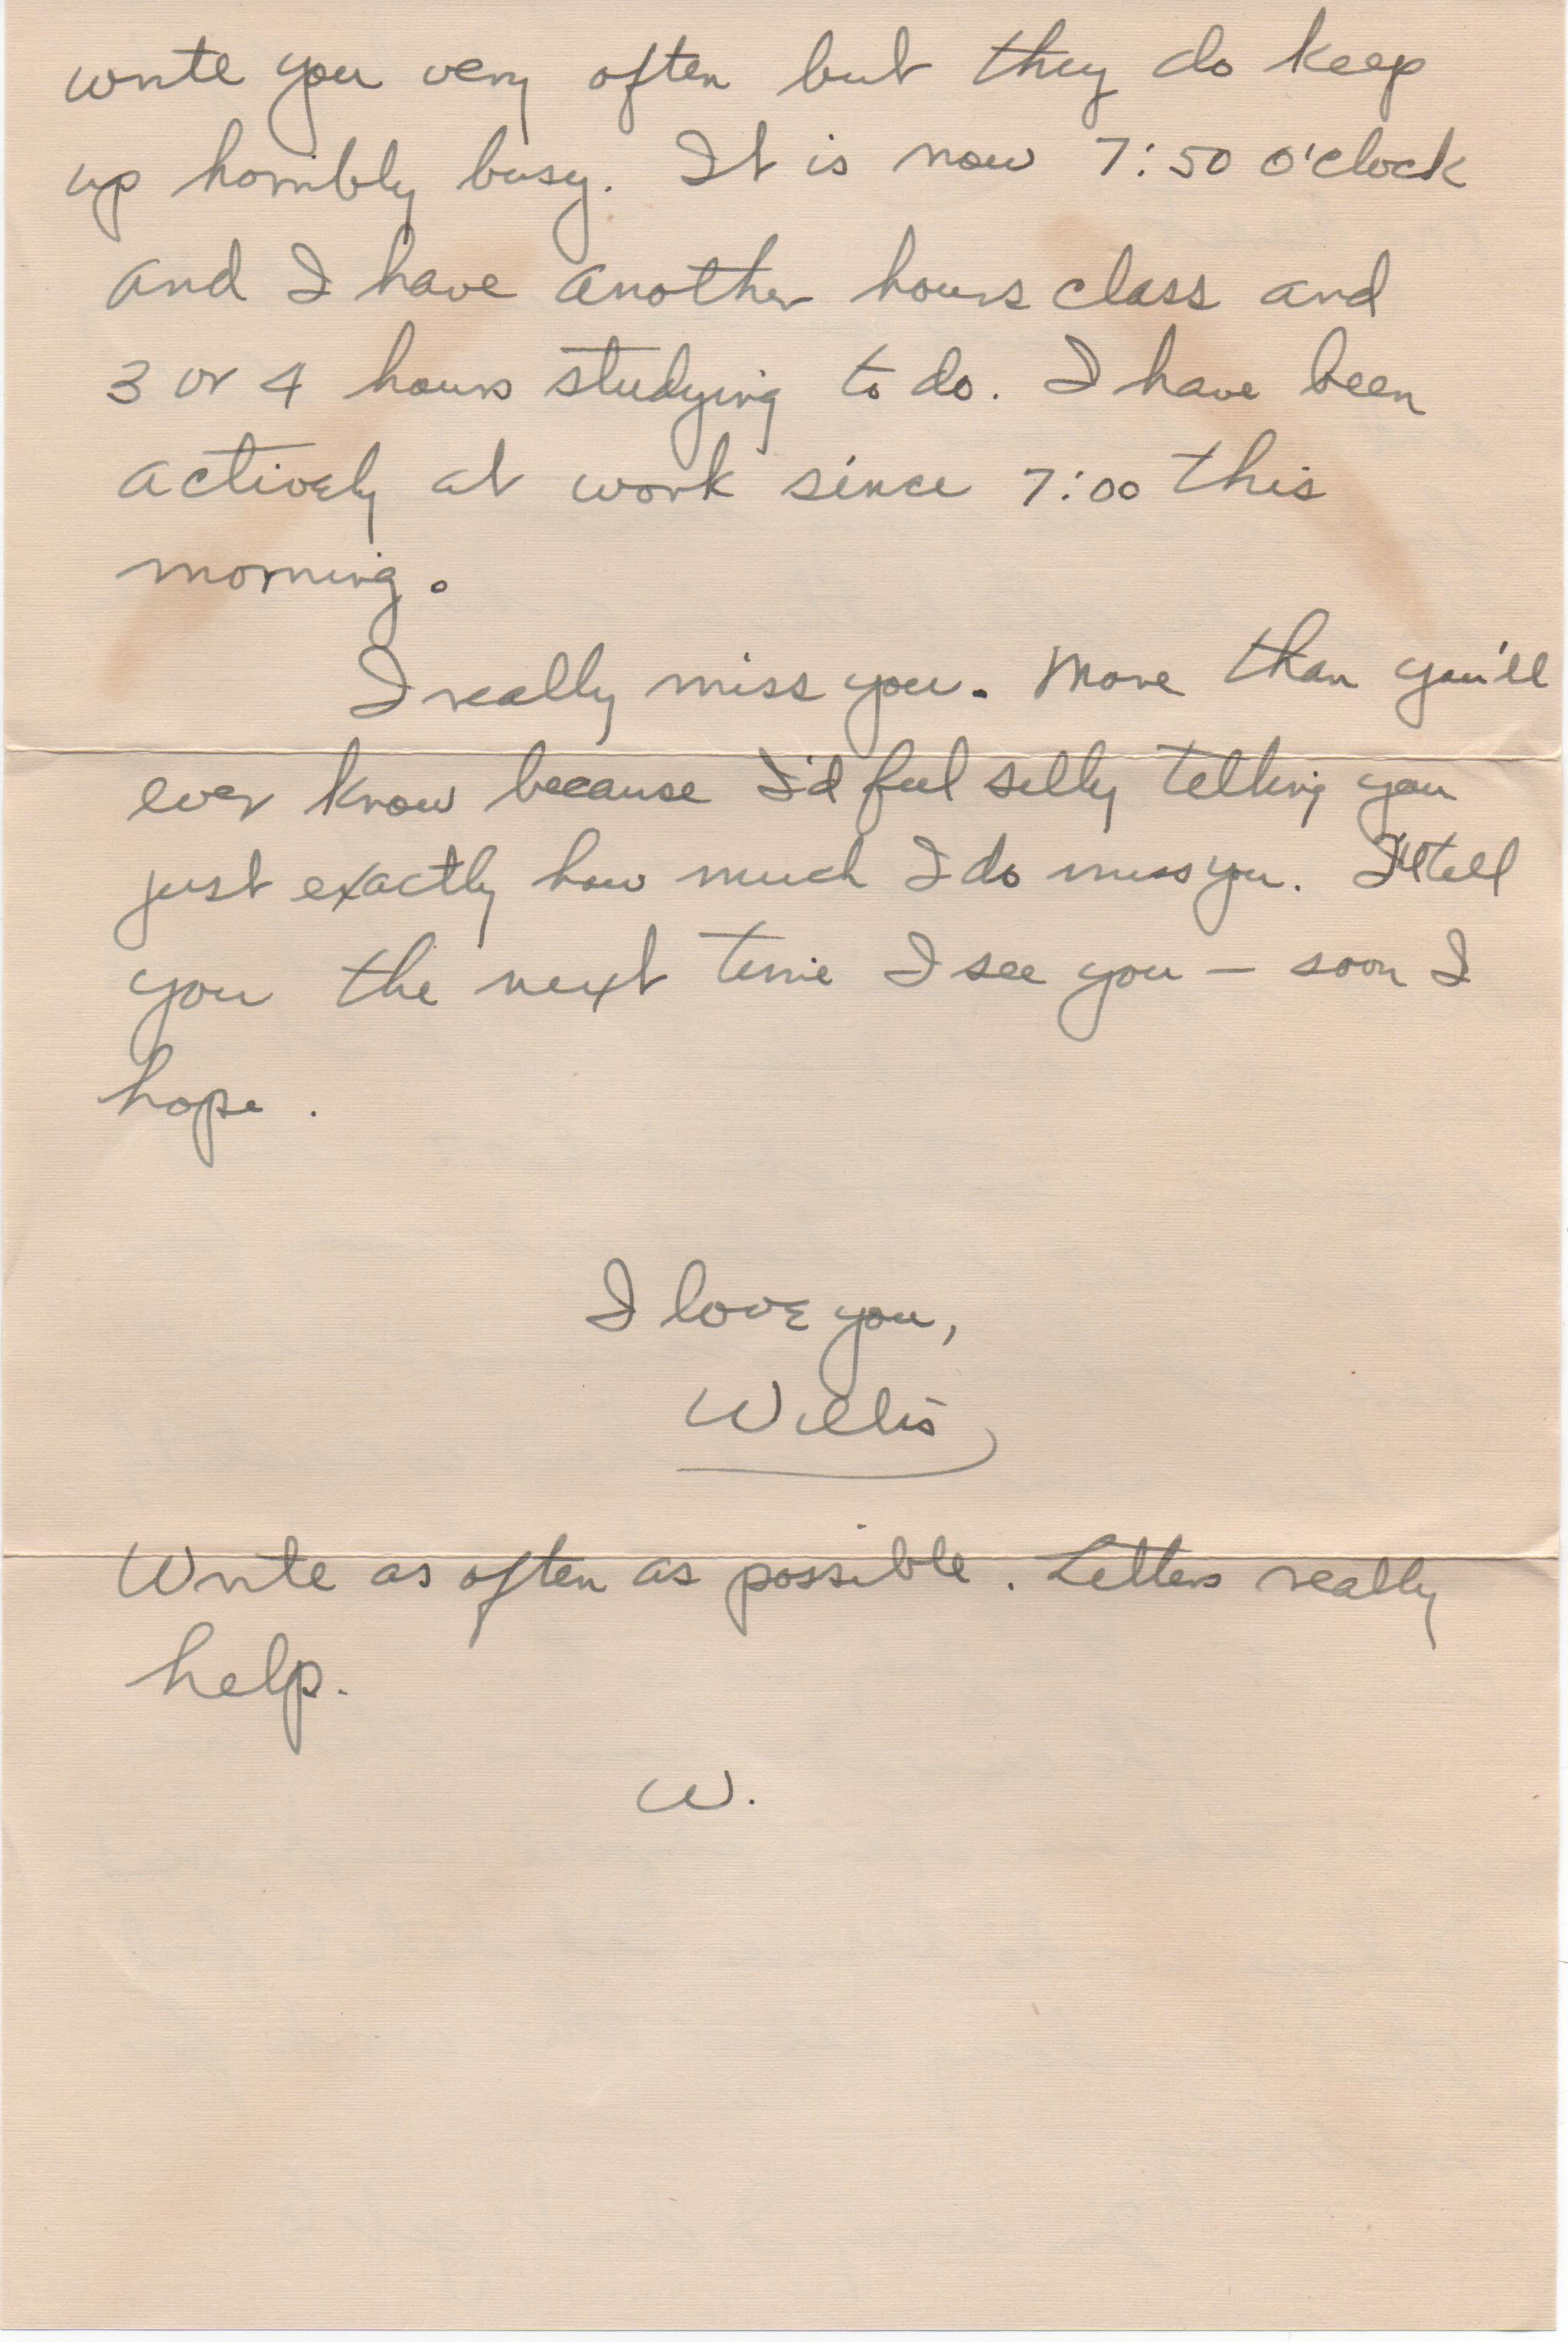 write you very often but they do keep
up horribly busy. It is now 7:50 o'clock
and I have another hours class and
3 or 4 hours studying to do. I have been
actively at work since 7:00 this
morning.
I really miss you. More than you'll
ever know because I'd feel silly telling you
just exactly how much I do miss you. I'll tell
you the next time I see you — soon I
hope.
I love you,
Willis
Write as often as possible. Letters really
help.
W.